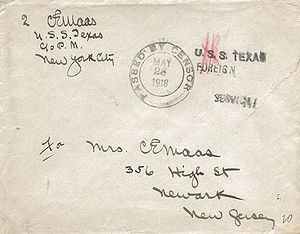 2 CEMaas
U.S.S. Texas
c/o P.M.
New York City
PASSED BY CENSOR
MAY
28
1918
U. S. S. TEXAS
FOREIGN
SERVICE!
To Mrs. CEMaas
356 High St
Newark
New Jersey